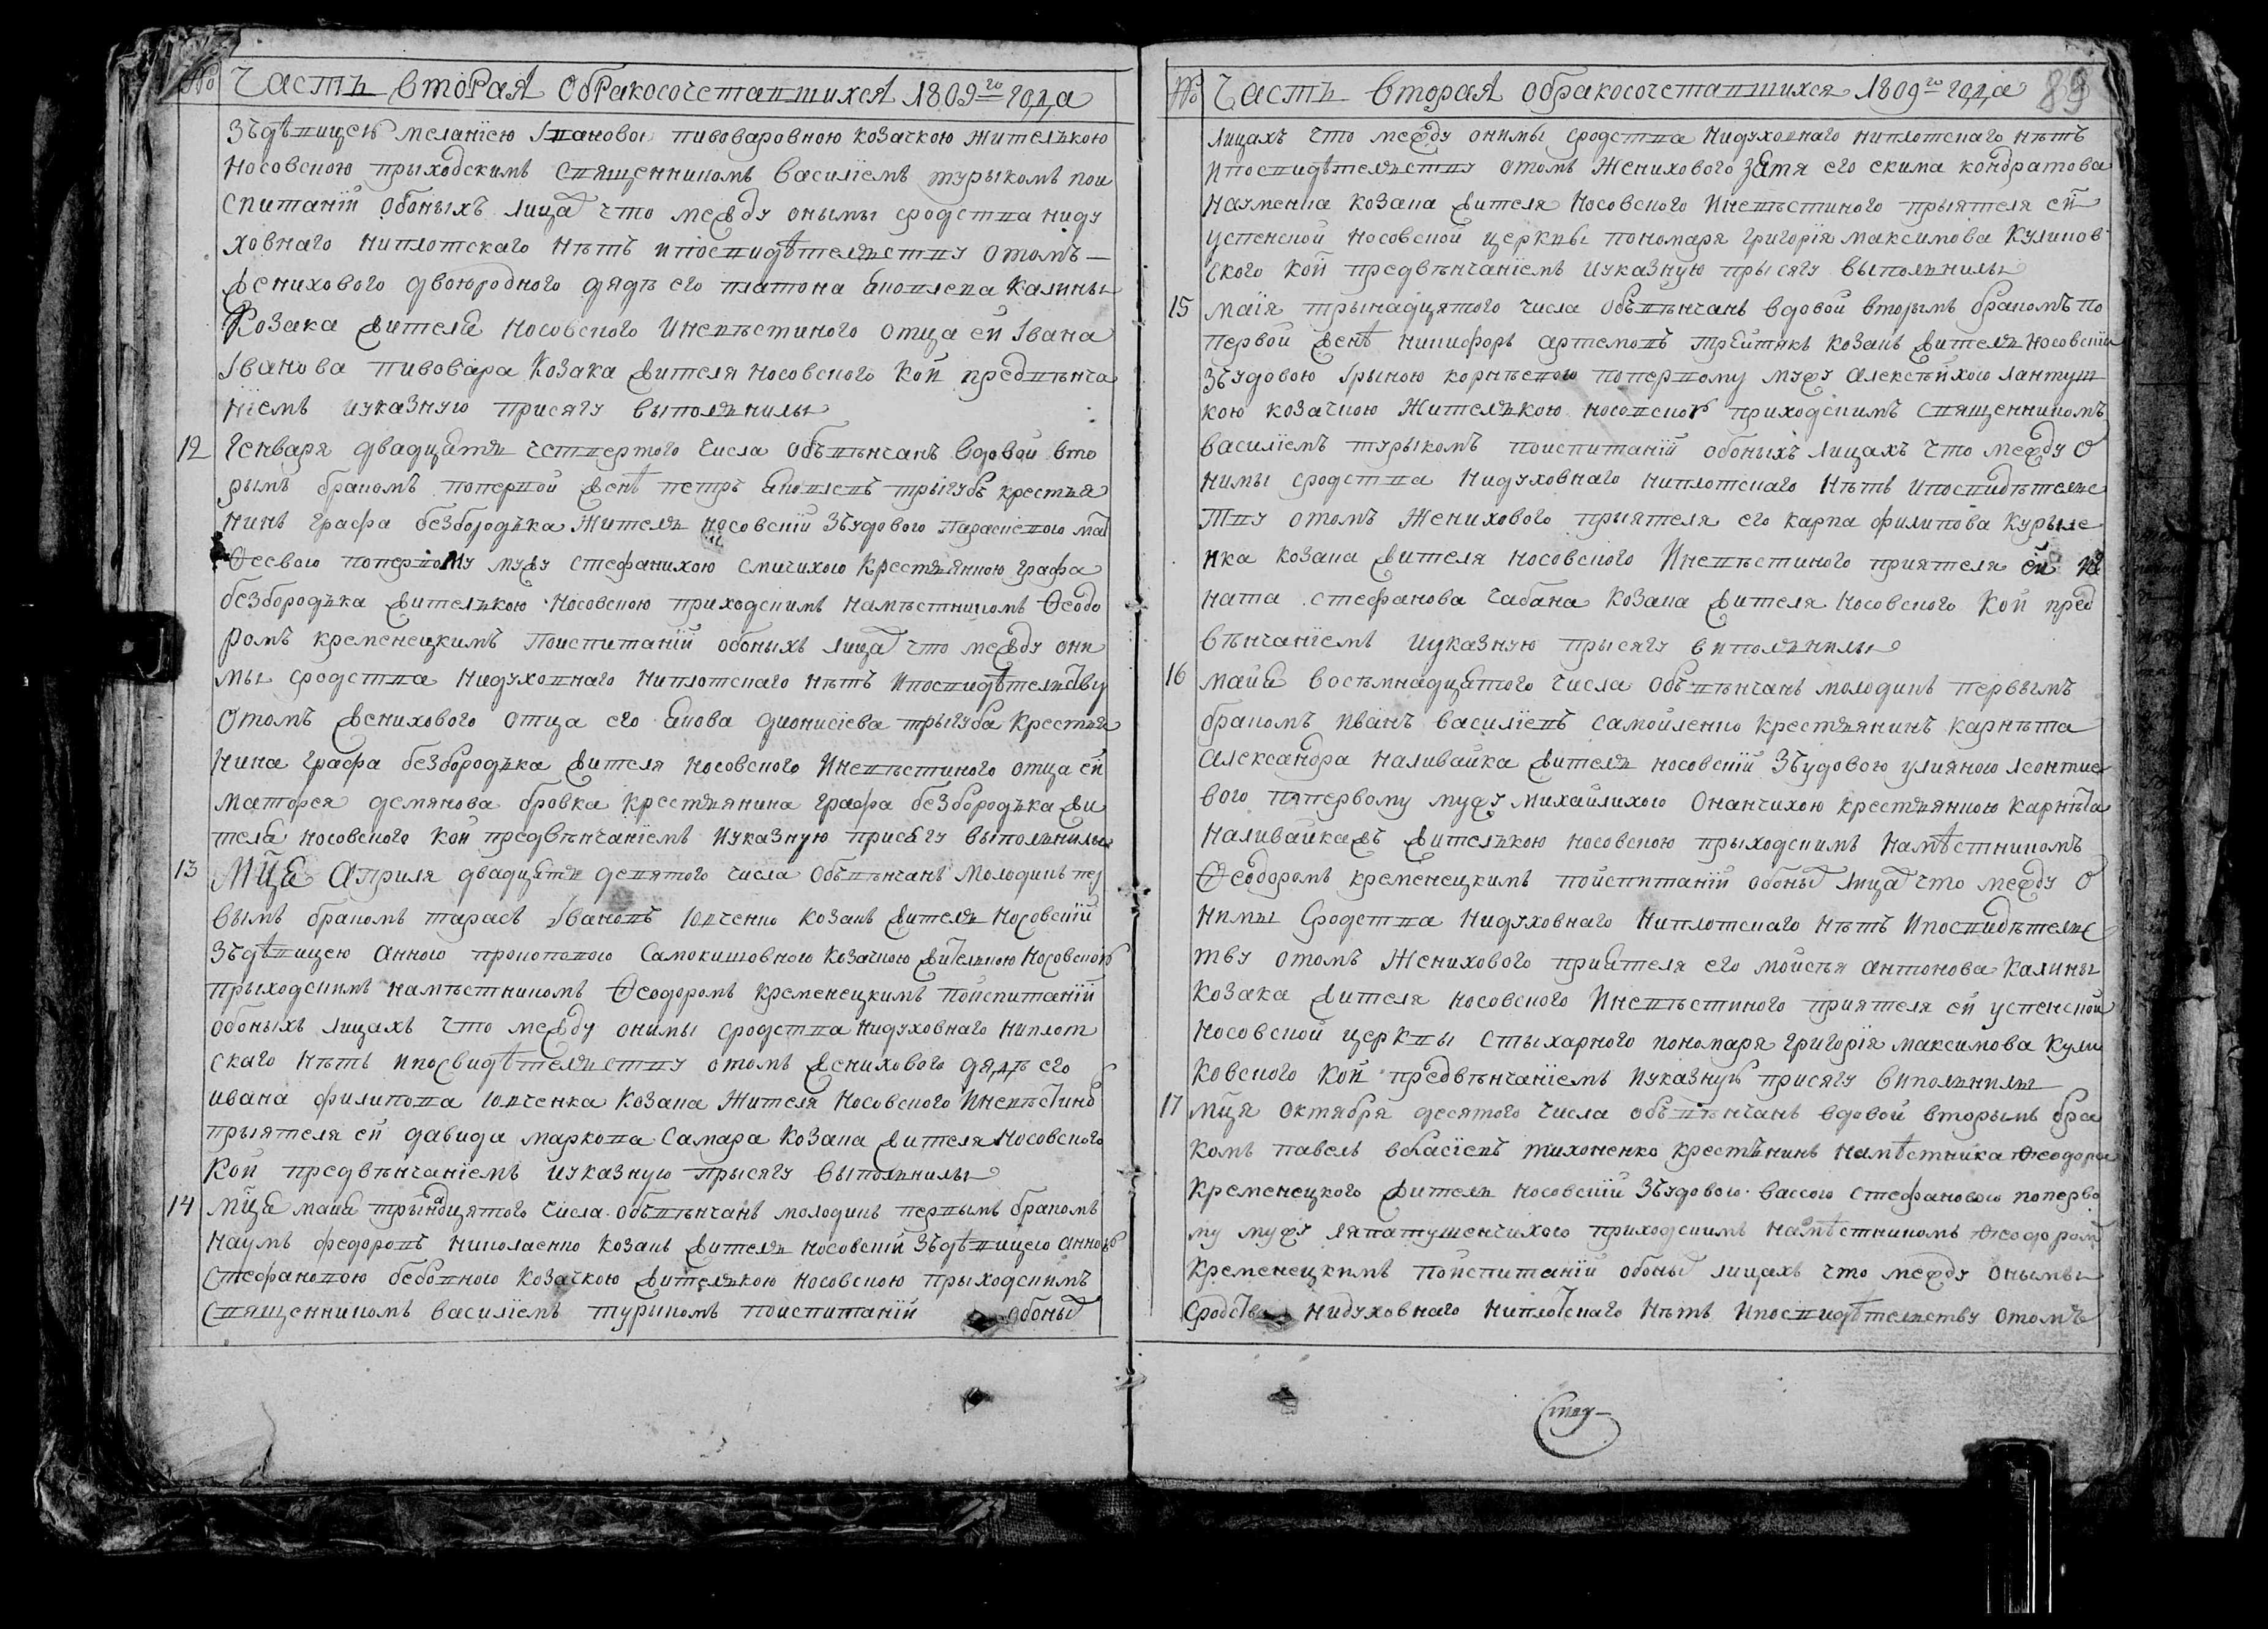 № Часть вторая обракосочетавшихся 1809го года
Зъдѣвицею меланїею Iвановою пивоваровною козачкою жителькою
Носовскою прыходскимъ священникомъ василїемъ турыкомъ пои
спитанїй обоныхъ лицахъ что между онымы сродства ниду
ховнаго ниплотскаго нѣтъ ипосвидѣтельству отомъ
женихового двоюродного дядѣ его платона яковлева калины
козака жителя носовского иневѣстиного отца ей Iвана
Iванова пивовара козака жителя носовского кой предвѣнча
нїемъ иуказную присягу выполнилы
12 генваря двадцять четвертого числа объвѣнчанъ вдовой вто
рымъ бракомъ попервой женѣ петръ яковлевъ трыгубъ крестья
нинъ графа безбородька житель носовскїй зъудовою параскевою мат
ѳеевою попервому мужу стефанихою смичихою крестьянкою графа
безбородька жителькою носовскою приходскимъ намѣстникомъ ѳеодо
ромъ кременецкимъ поиспитанїй обоныхъ лицахъ что между они
мы сродства нидуховнаго ниплотскаго нѣтъ ипосвидѣтельству
отомъ женихового отца его якова дионисїева трыгуба крестья
нина графа безбородька жителя носовского иневѣстиного отца ей
матфея демянова бровка крестьянина графа безбородька жи
теля носовского кой предвѣнчанїемъ иуказную присягу выполнилы
13 Мцѧ Априля двадцять девятого числа объвѣнчанъ молодикъ пер
вымъ бракомъ тарасъ Iвановъ юдченко козакъ житель носовскїй
зъдѣвицею анною прокоповою самокишовною козачкою жителькою носовскою
прыходскимъ намѣстникомъ ѳеодоромъ кременецкимъ поиспитанїй
обоныхъ лицахъ что между онимы сродства нидуховнаго ниплот
скаго нѣтъ ипосвидѣтельству отомъ женихового дядѣ его
ивана филипова юдченка козака жителя носовского иневѣстино
прыятеля ей давида маркова самара козака жителя носовского
кой предвѣнчанїемъ иуказную прысягу выполнилы
14 мцѧ мая трынадцятого числа объвѣнчанъ молодикъ первымъ бракомъ
наумъ федоровъ николаенко козакъ житель носовскїй зъдѣвицею анною
стефановою бебовною козачкою жителькою носовскою прыходскимъ
священникомъ василїемъ турыкомъ поиспитанїй обоных
№ Часть вторая обракосочетавшихся 1809го года 89
лицахъ что между онимы сродства нидуховнаго ниплотскаго нѣтъ
ипосвидѣтельству отомъ женихового зятя его екима кондратова
науменка козака жителя носовского иневѣстиного прыятеля ей
успенской носовской церквы пономаря григорїя максимова куликов
ского кой предвѣнчанїемъ иуказную прысягу выполнилы
15 маїя трынадцятого числа объвѣнчанъ вдовой вторымъ бракомъ по
первой женѣ никифоръ артемовъ трейтякъ козакъ житель носовскїй
зъудовою Iрыною корнѣевою попервому мужу алексѣйхою лантуш
кою козачкою жителькою носовскою приходскимъ священникомъ
василїемъ турыкомъ поиспитанїй обоныхъ лицахъ что между о
нимы сродства нидуховнаго ниплотскаго нѣтъ ипосвидѣтельс
тву отомъ женихового приятеля его карпа филипова курыле
нка козака жителя носовского иневѣстиного приятеля ей иг
ната стефанова чабана козака жителя носовского кой пред
вѣнчанїемъ иуказную прысягу виполнилы
16 майя восѣмнадцятого числа объвѣнчанъ молодикъ первымъ
бракомъ иванъ василїевъ самойленко крестьянинъ карнѣта
александра наливайка житель носовскїй зъудовою улияною леонтие
вою попервому мужу михайлихою онанчихою крестьянкою карнѣта
наливайка жъ жителькою носовскою прыходскимъ намѣстникомъ
ѳеодоромъ кременецкимъ поиспитанїй обоных лицах что между о
нимы сродства нидуховнаго ниплотскаго нѣтъ ипосвидѣтельс
тву отомъ женихового приятеля его мойсѣя антонова калины
козака жителя носовского иневѣстиного приятеля ей успенской
носовской церквы стыхарного пономаря григорїя максимова кули
ковского кой предвѣнчанїемъ иуказную присягу виполнилы
17 мця октября десятого числа объвѣнчанъ вдовой вторымъ бра
комъ павелъ власїевъ тихоненко крестьнинъ намѣстника ѳеодора
кременецкого житель носовскїй зъудовою вассою стефановою поперво
му мужу лапатушенчихою приходскимъ намѣстникомъ ѳеодором
кременецкимъ поиспитанїй обоных лицахъ что между онымы
сродства нидуховнаго ниплотскаго нѣтъ ипосвидѣтельству отомъ